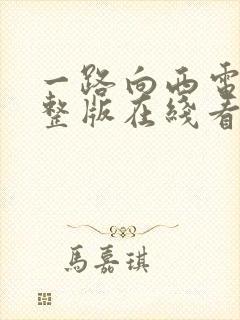 一路向西電
整版在綫看
馬嘉琪